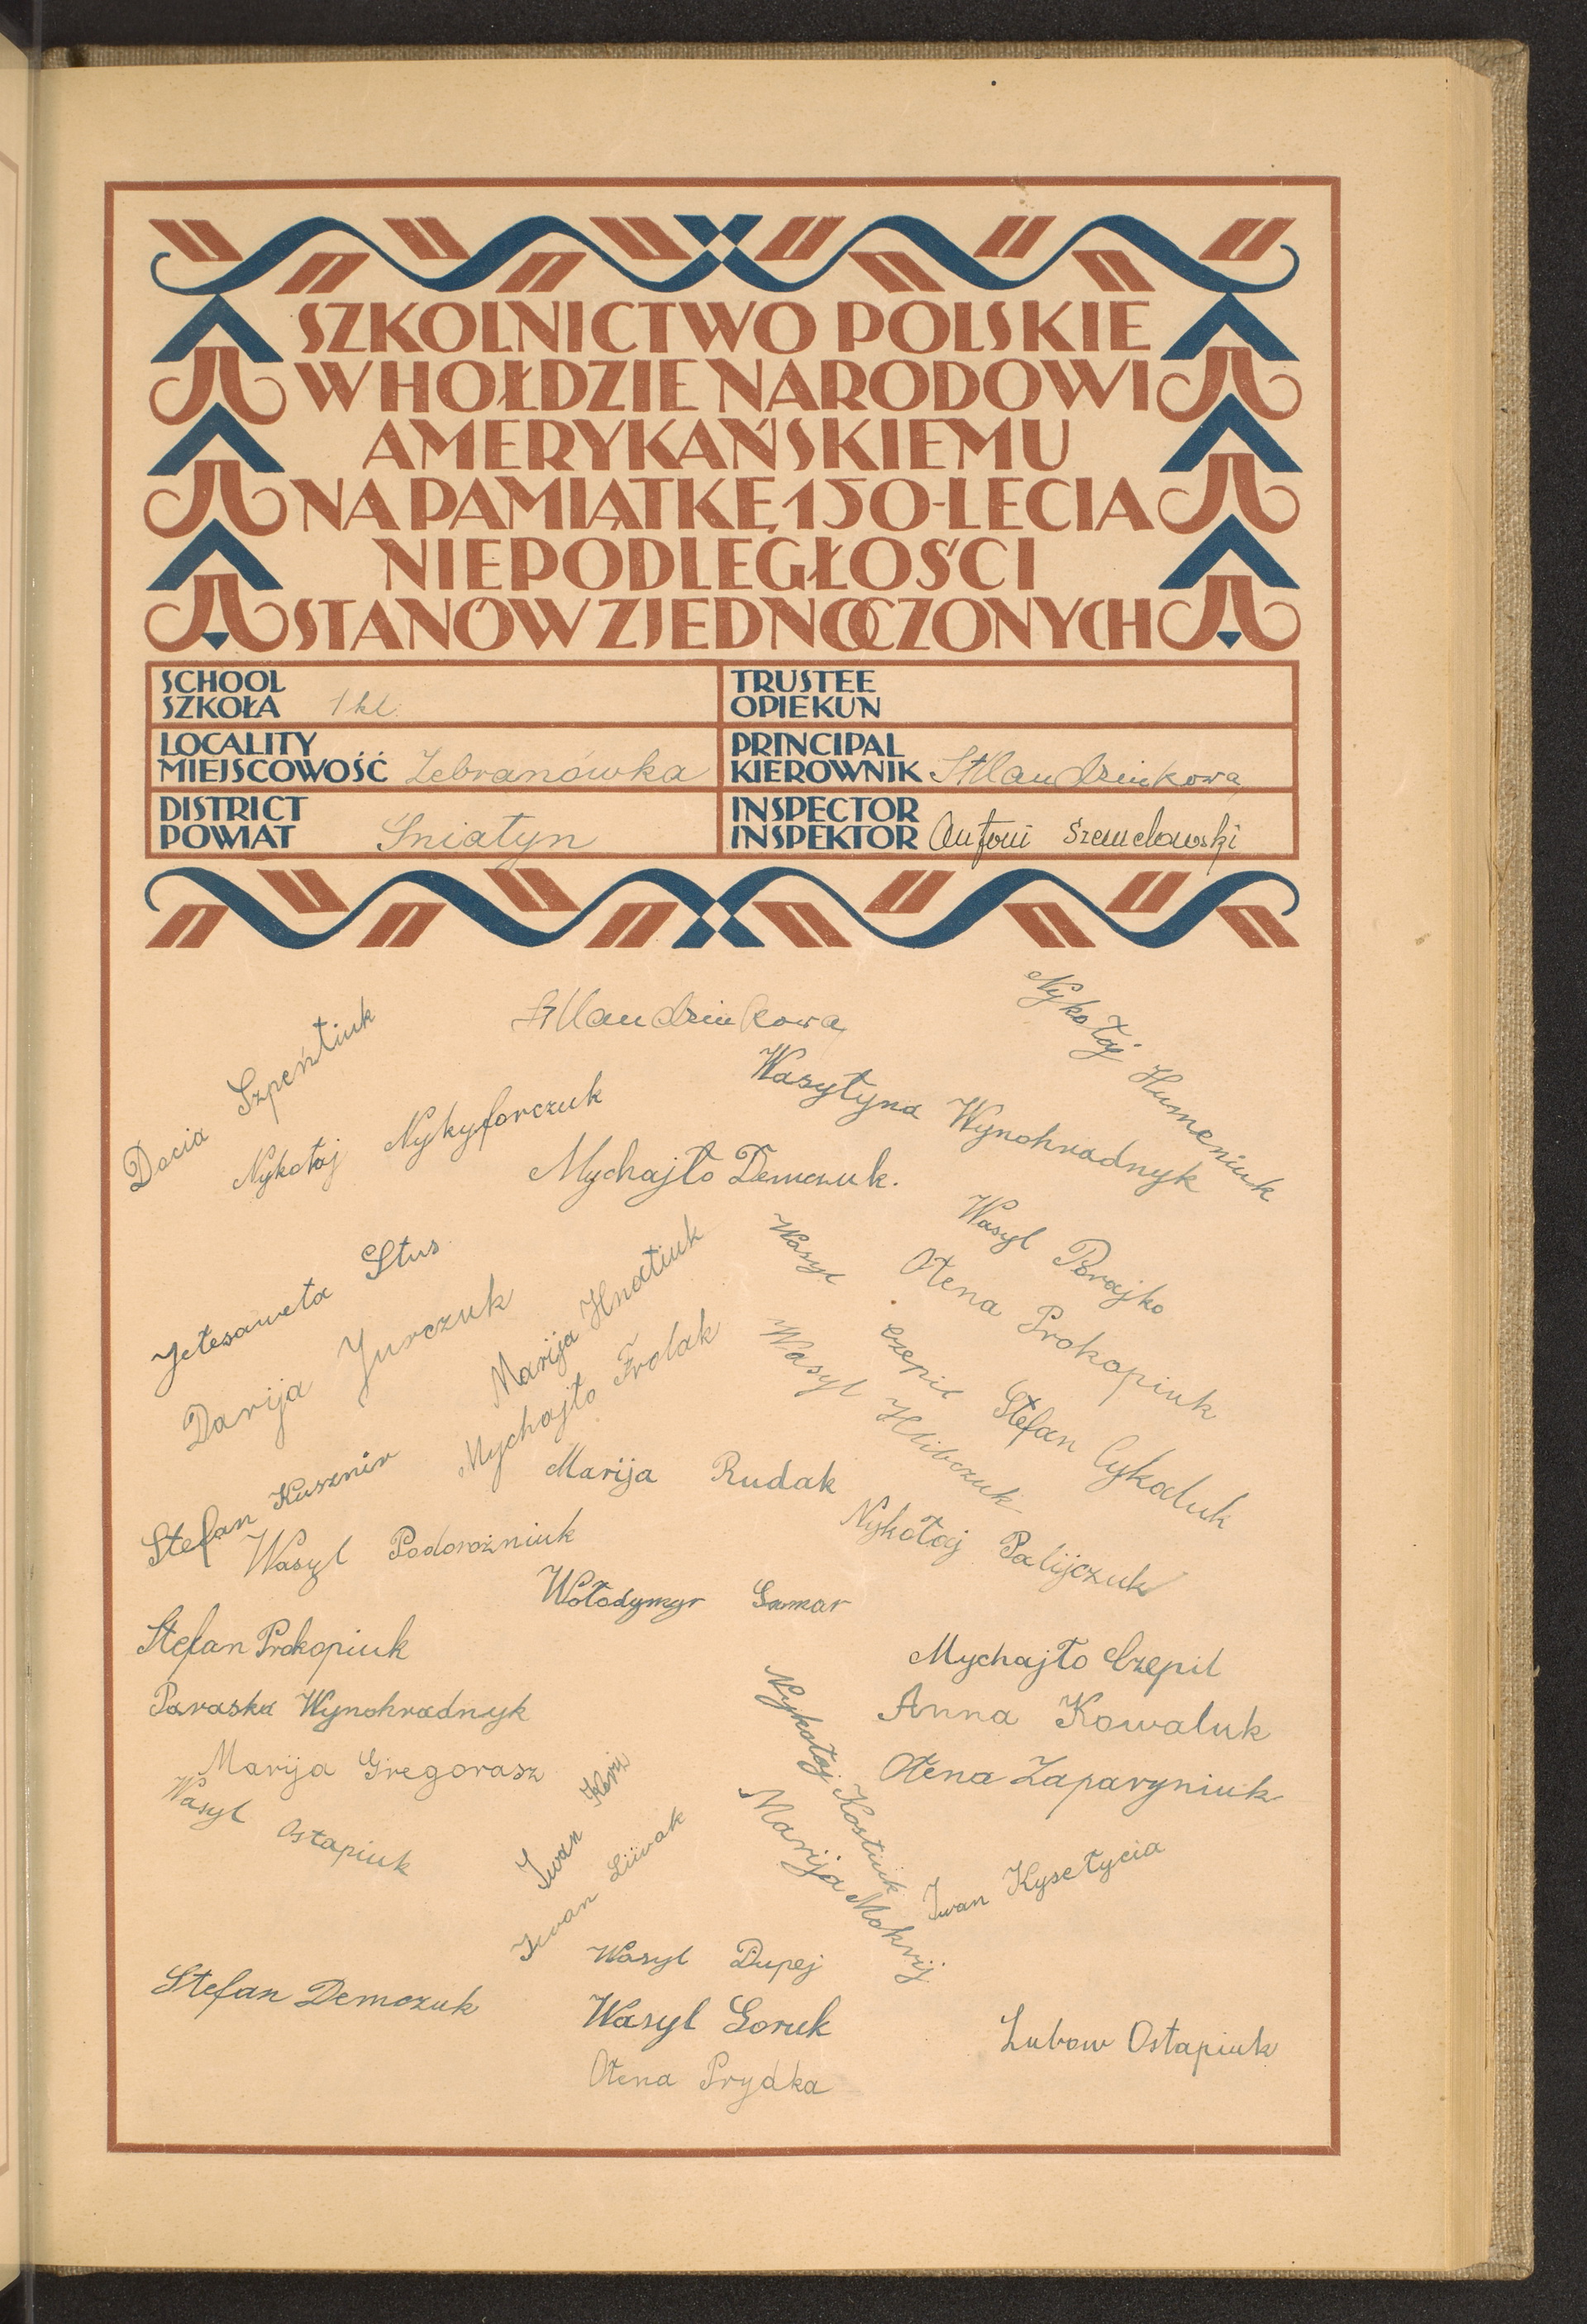 SZKOLNICTWO POLSKIE
W HOŁDZIE NARODOWI
AMERYKAŃSKIEMU
NA PAMIĄTKĘ 150-LECIA
NIEPODLEGŁOŚCI
STANÓW ZJEDNOCZONYCH
SCHOOL
SZKOŁA 1 kl.
TRUSTEE
OPIEKUN
LOCALITY
MIEJSCOWOŚĆ Zebranówka
PRINCIPAL
KIEROWNIK
DISTRICT
POWIAT Śniatyn
INSPECTOR
INSPEKTOR Antoni
Nykołaj Humeniuk
Docia Szpeńtiuk
Wasyłyna Wynohradnyk
Nykołaj Nykyforczuk
Mychajło Demczuk.
Wasyl Porajko
Jełesaweta Stus
Ołena Prokopiuk
Wasyl Czepil
Marija Hnatiuk
Darija Jurczuk
Mychajło Frolak
Wasyl Hlibczuk
Stefan Cykaluk
Stefan Kusznir
Marija Rudak
Nykołaj Palijczuk
Wasyl Podorożniuk
Wołodymyr
Stefan Prokopiuk
Mychajło Czepil
Paraska Wynohradnyk
Anna Kowaluk
Marija Gregorasz
Nykołaj Kostiuk
Ołena Zaparyniuk
Wasyl Ostapiuk
Iwan
Iwan
Marija Mokrij
Iwan Kysełycia
Wasyl Dupej
Stefan Demczuk
Wasyl Goruk
Lubow Ostapiuk
Ołena Prydka